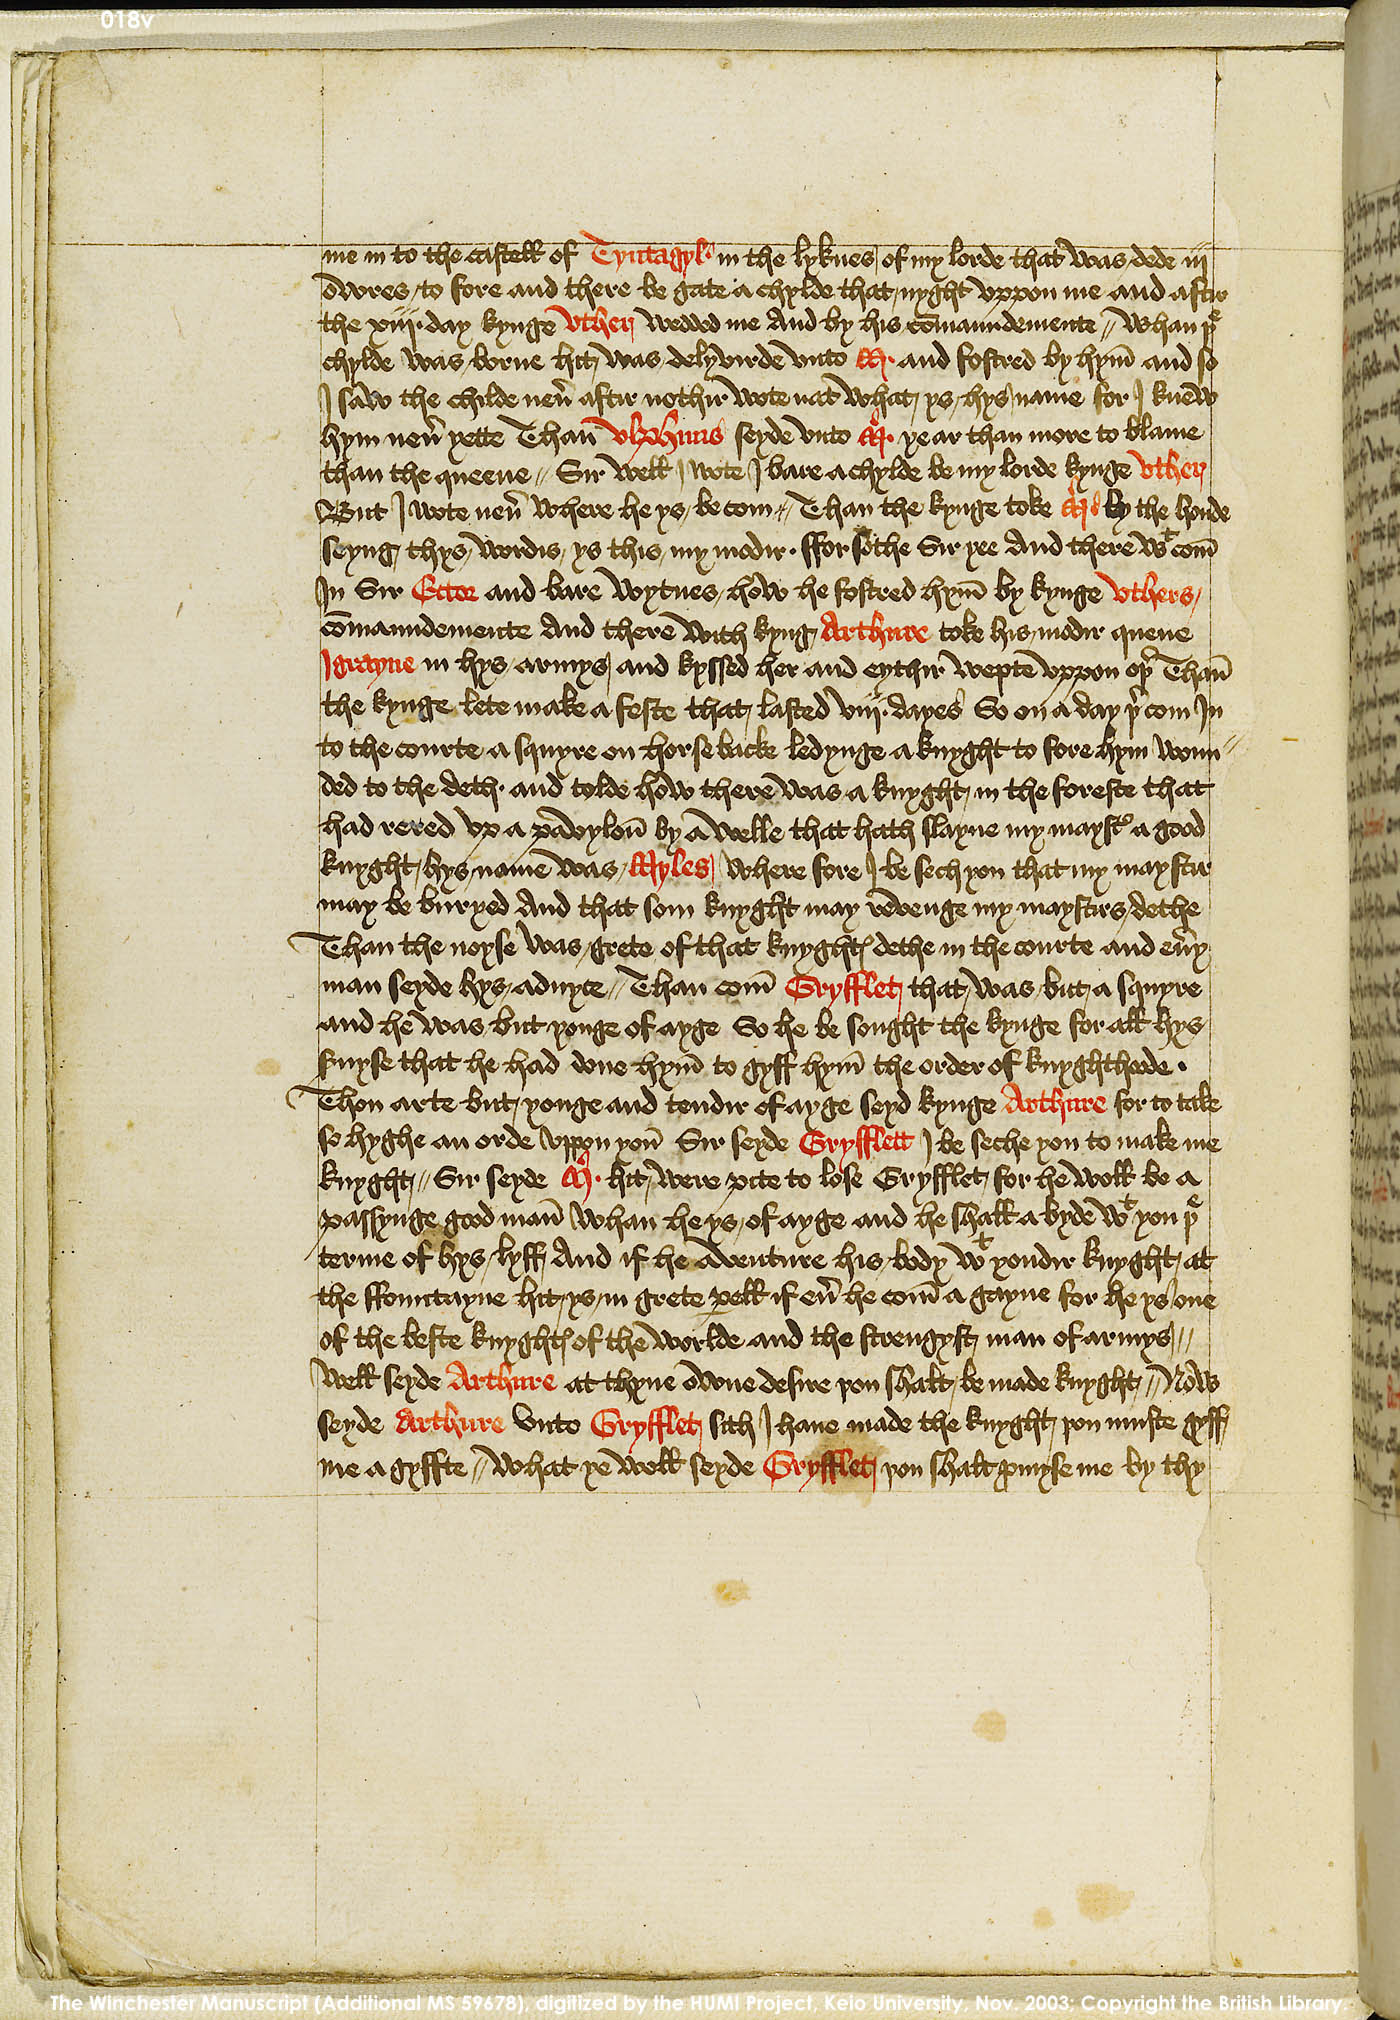 018v
me in to the castell of Tyntagyl in the lyknes of my lorde that was dede iij
owres to fore and there be gate a chylde that nyght vppon me and aftir
the xiij day kynge Vther wedded me And by his cōmaundemente // Whan þe
chylde was borne hit was delyvirde vnto M. and fostred by hym̄ and so
I saw the childe neu̓ aftir nothir wote nat what ys hys name for I knew
hym neu̓ yette Than̄ Vlphuns seyde vnto M. ye ar than more to blame
than the queene // Sir well I wote I bare a chylde be my lorde kynge Vther
But I wote neu̓ where he ys becom // Than the kynge toke M. by the honde
seyng thys wordis ys this my modir . ffor sothe Sir yee And there wt com̄
In Sir Ector and bare wytnes how he fostred hym̄ by kynge Vthers
cōmaundemente And there with kyng Arthure toke his modir quene
Igrayne in hys armys and kyssed her and eythir wepte vppon oþ̓ Than̄
the kynge lete make a feste that lasted viij. dayes So on a day þ̓ com In
to the courte a squyre on horse backe ledynge a knyght to fore hym woun //
ded to the deth . and tolde how there was a knyght in the foreste that
had rered vp a pavylon̄ by a welle that hath slayne my mayst̓ a good
knyght hys name was Myles where fore I be sech you that my maystir
may be buryed And that som knyght may revenge my maystirs dethe
Than the noyse was grete of that knyghtꝭ dethe in the courte and eu̓y
man seyde hys advyce // Than com̄ Gryfflet that was but a squyre
and he was but yonge of ayge So he be sought the kynge for all hys
s̓uyse that he had done hym̄ to gyff hym̄ the order of knyghthode .
Thou arte but yonge and tendir of ayge seyd kynge Arthure for to take
so hyghe an orde vppon you̅ Sir seyde Gryfflett I be seche you to make me
knyght // Sir seyde M. hit were pite to lose Gryfflet for he woll be a
passynge good man̄ whan he ys of ayge and he shall a byde wt you þe
terme of hys lyff And if he adventure his body wt yondir knyght at
the ffountayne hit ys in grete ꝑell if eu̓ he com̄ a gayne for he ys one
of the beste knyghtꝭ of the worlde and the strengyst man of armys //
Well seyde Arthure at thyne owne desire þou shalt be made knyght // Now
seyde Arthure Vnto Gryfflet sith I haue made the knyght þou muste gyff
me a gyffte // What ye woll seyde Gryfflet þou shalt ꝓmyse me by thy
The Winchester Manuscript (Additional MS 59678), digitized by the HUMI Project, Keio University, Nov. 2003; Copyright the British Library.